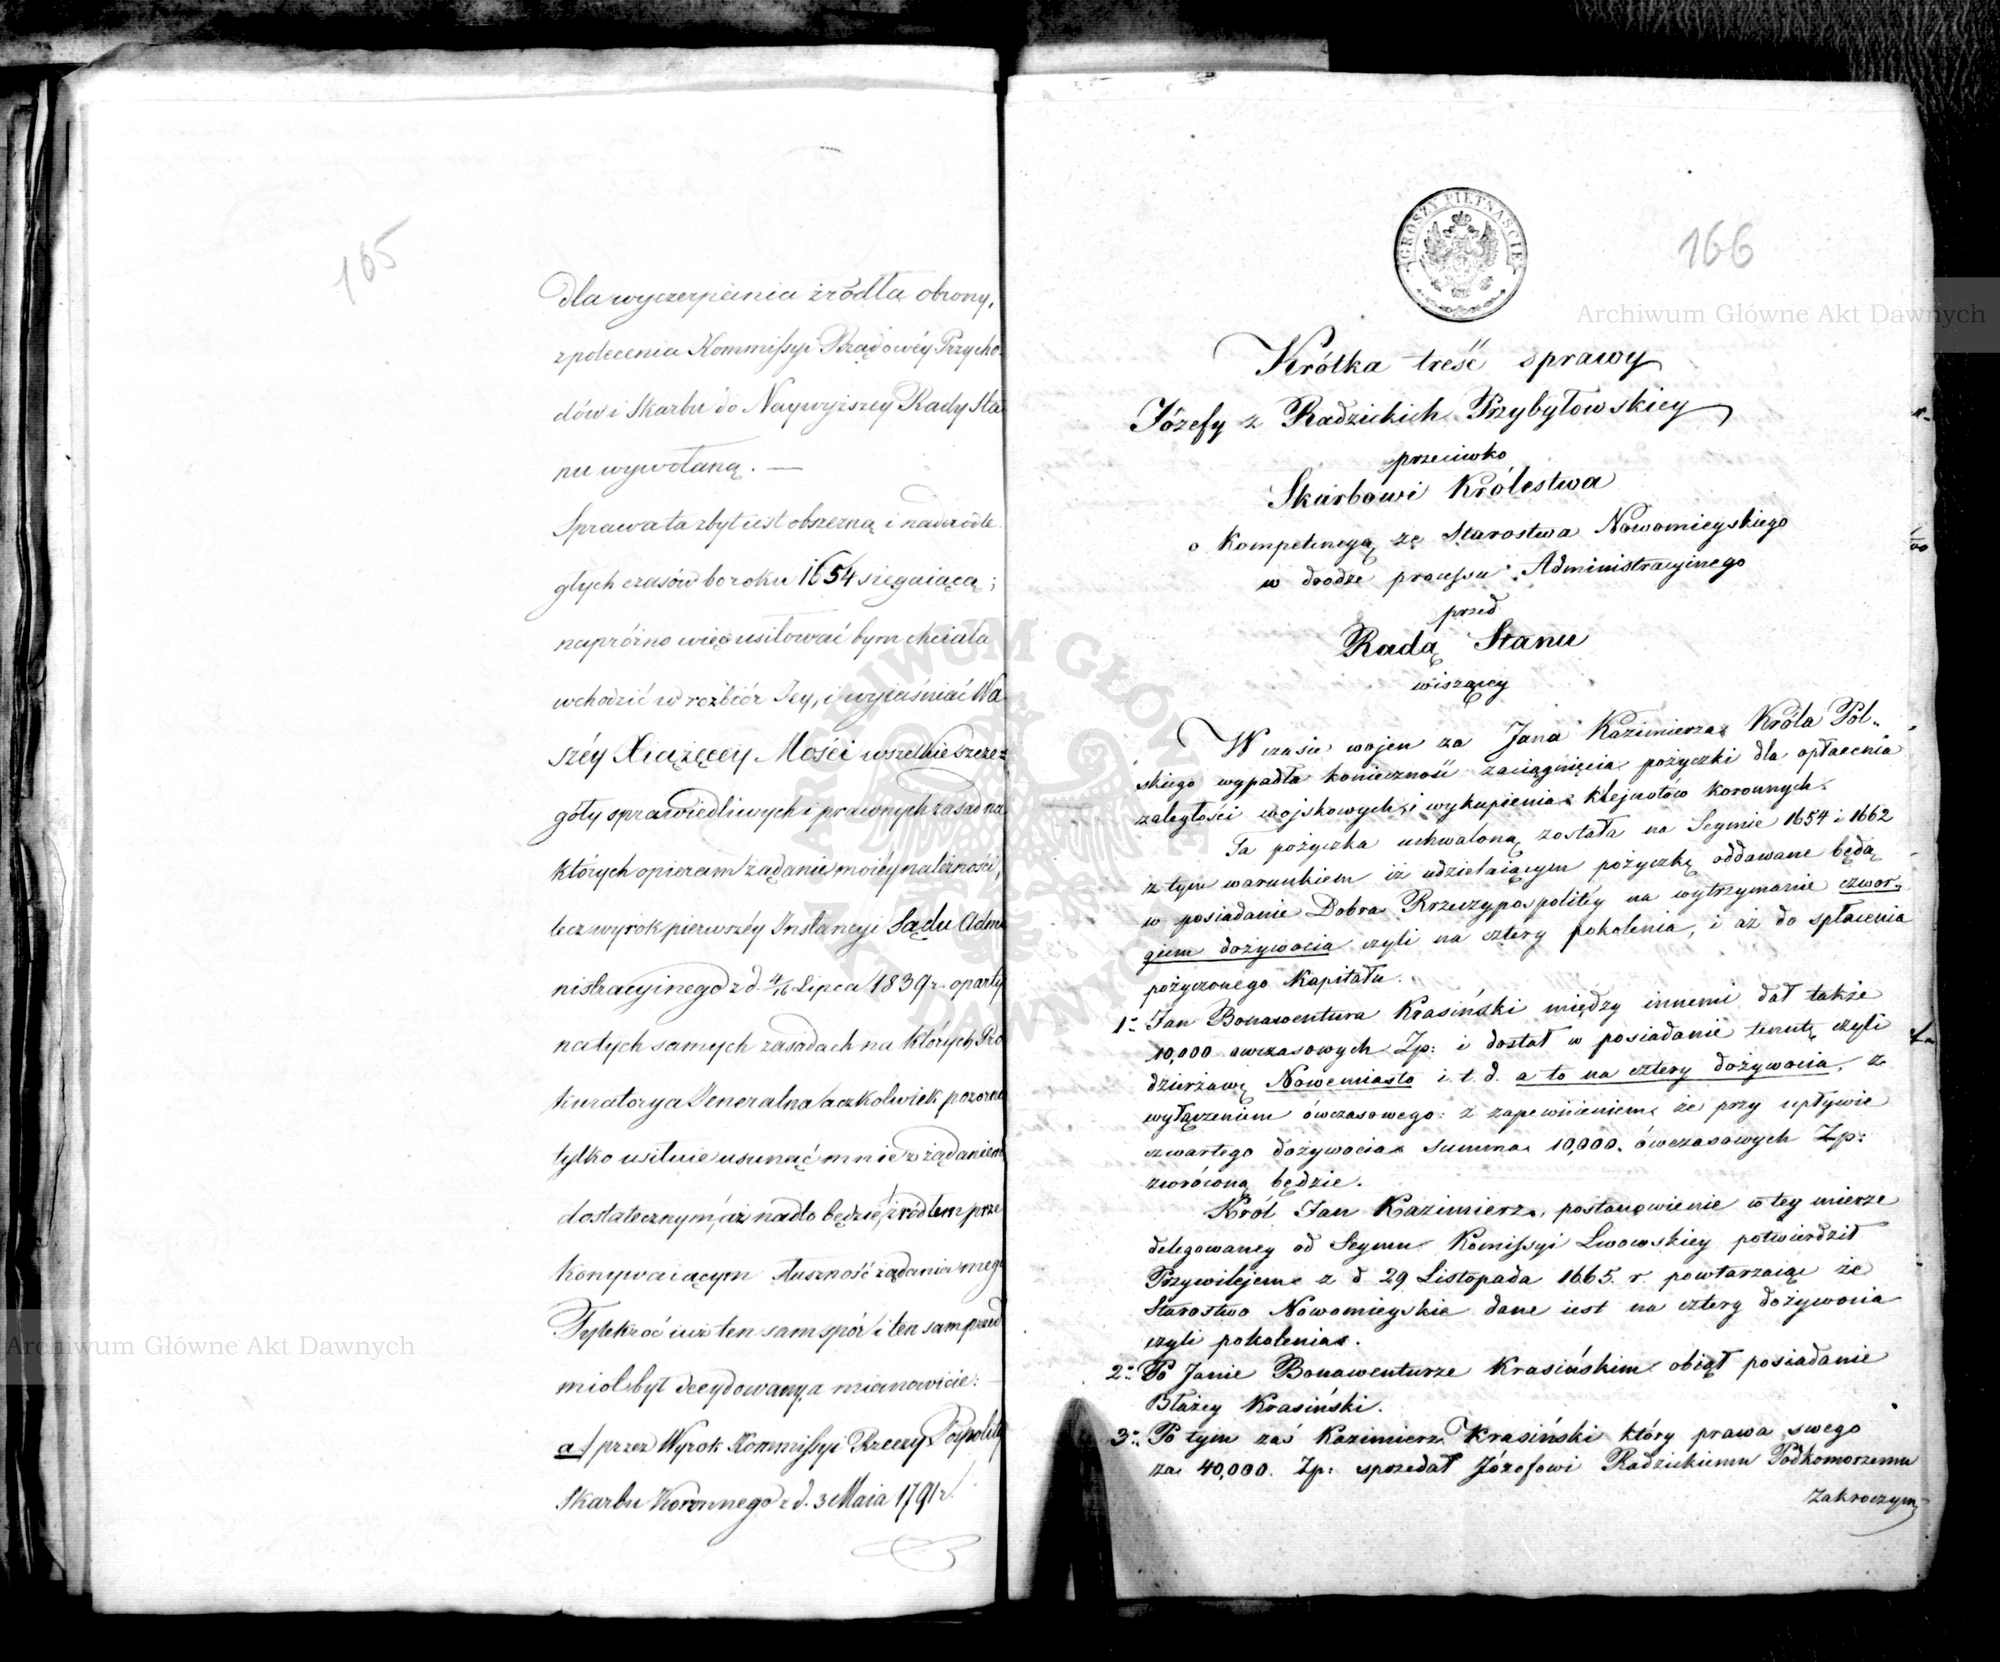 165
dla wyczerpienia źródła obrony,
z polecenia Kommissyi Rządowéy Przycho-
dów i Skarbu do Naywyższey Rady Sta
nu wywołaną. —
Sprawa ta zbyt iest obszerną i na odle
głych czasów bo roku 1654 sięgaiącą;
napróżno więc usiłować bym chciała
wchodzić w rozbiór Jey, i wyiaśniać Wa
széy Xiążęcey Mości wszelkie szcze=
góły sprawiedliwych i prawnych zasad na
których opieram żądanie moiéy należności,
lecz wyrok pierwszéy Instancyi Sądu Admi
nistracyinego z d. 4/16 Lipca 1839 r. oparty
na tych samych zasadach na których Pro
kuratorya Generalna aczkolwiek pozornie
tylko usiłuie usunąć mnie z żądaniem
dostatecznym, aż nadto będzie źródłem prze
konywaiącym słuszność żądania mego
Tylekroć iuż ten sam spór i ten sam przed
miot był decydowany, a mianowicie:
a/ przez Wyrok Kommissyi Rzeczy Pospolitéy
Skarbu Koronnego z d. 3 Maia 1791 r.
GROSZY PIĘTNAŚCIE
166
Krótka treść sprawy
Józefy z Radzickich Przybyłowskiey
przeciwko
Skarbowi Królestwa
o Kompetencyą ze Starostwa Nowomieyskiego
w drodze processu Administracyinego
przed
Radą Stanu
wiszącey
W czasie wojen za Jana Kazimierza Króla Pol„
skiego wypadła konieczność zaciągnięcia pożyczki dla opłacenia
zaległości wojskowych i wykupienia klejnotów koronnych.
Ta pożyczka uchwaloną została na Seymie 1654 i 1662
z tym warunkiem iż udzielaiącym pożyczkę oddawane będą
w posiadanie Dobra Rrzeczypospolitéy na wytrzymanie czwor„
giem dożywocia czyli na cztery pokolenia, i aż do spłacenia
pożyczonego Kapitału.
1° Jan Bonawentura Krasiński między innemi dał także
10,000 owczasowych Zp: i dostał w posiadanie tenutę czyli
dzierżawę Nowemiasto i.t.d. a to na cztery dożywocia, z
wyłączeniem ówczasowego: z zapewnieniem że przy upływie
czwartego dożywocia summa 10,000. ówczasowych Zp:
zwróconą będzie.
Król Jan Kazimierz, postanowienie w tey mierze
delegowaney od Seymu Komissyi Lwowskiey potwierdził
Przywilejem z d 29 Listopada 1665. r. powtarzaiąc że
Starostwo Nowomieyskie dane iest na cztery dożywocia
czyli pokolenia.
2° Po Janie Bonawenturze Krasińskim obiął posiadanie
Błażey Krasiński.
3° Po tym zaś Kazimierz Krasiński który prawa swego
za 40,000. Zp: sprzedał Józefowi Radzickiemu Podkomorzemu
Zakroczym
Archiwum Główne Akt Dawnych
Archiwum Główne Akt Dawnych
ARCHIWUM GŁÓWNE AKT DAWNYCH